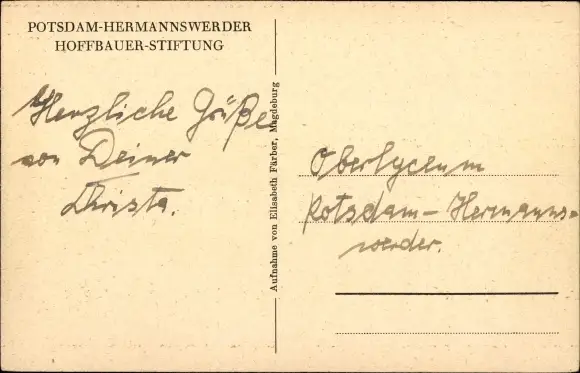 POTSDAM-HERMANNSWERDER
HOFFBAUER-STIFTUNG
Herzliche Grüße
von Deiner
Christa.
Aufnahme von Elisabeth Färber, Magdeburg
Oberlyceum
Potsdam-Hermanns-
werder.